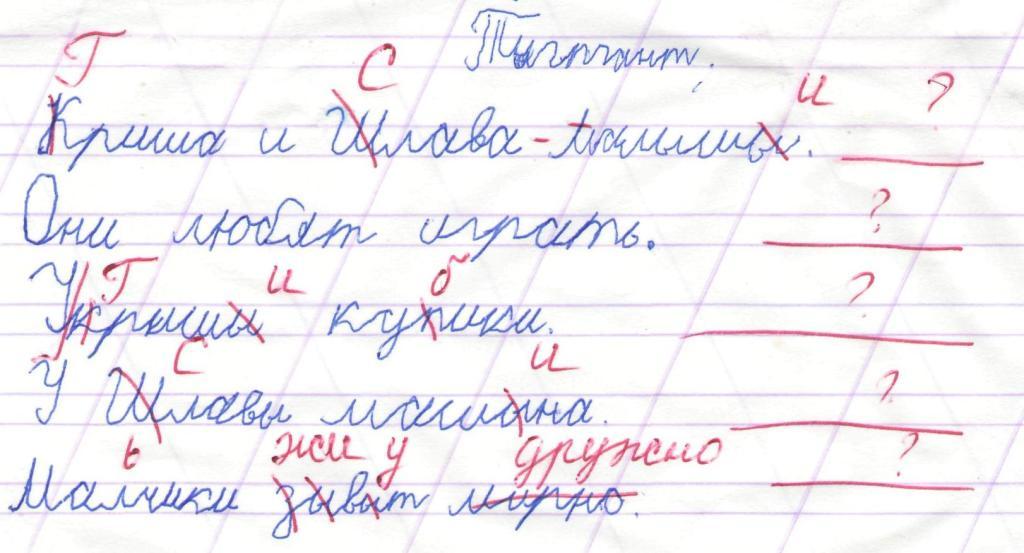 Г С и ?
Криша и Шлава - малышы.
Они любят играть. ?
Г и б ?
Укришы купики.
С и ?
У Шлавы машына.
ь жи у дружно ?
Малчики зывят мирно.